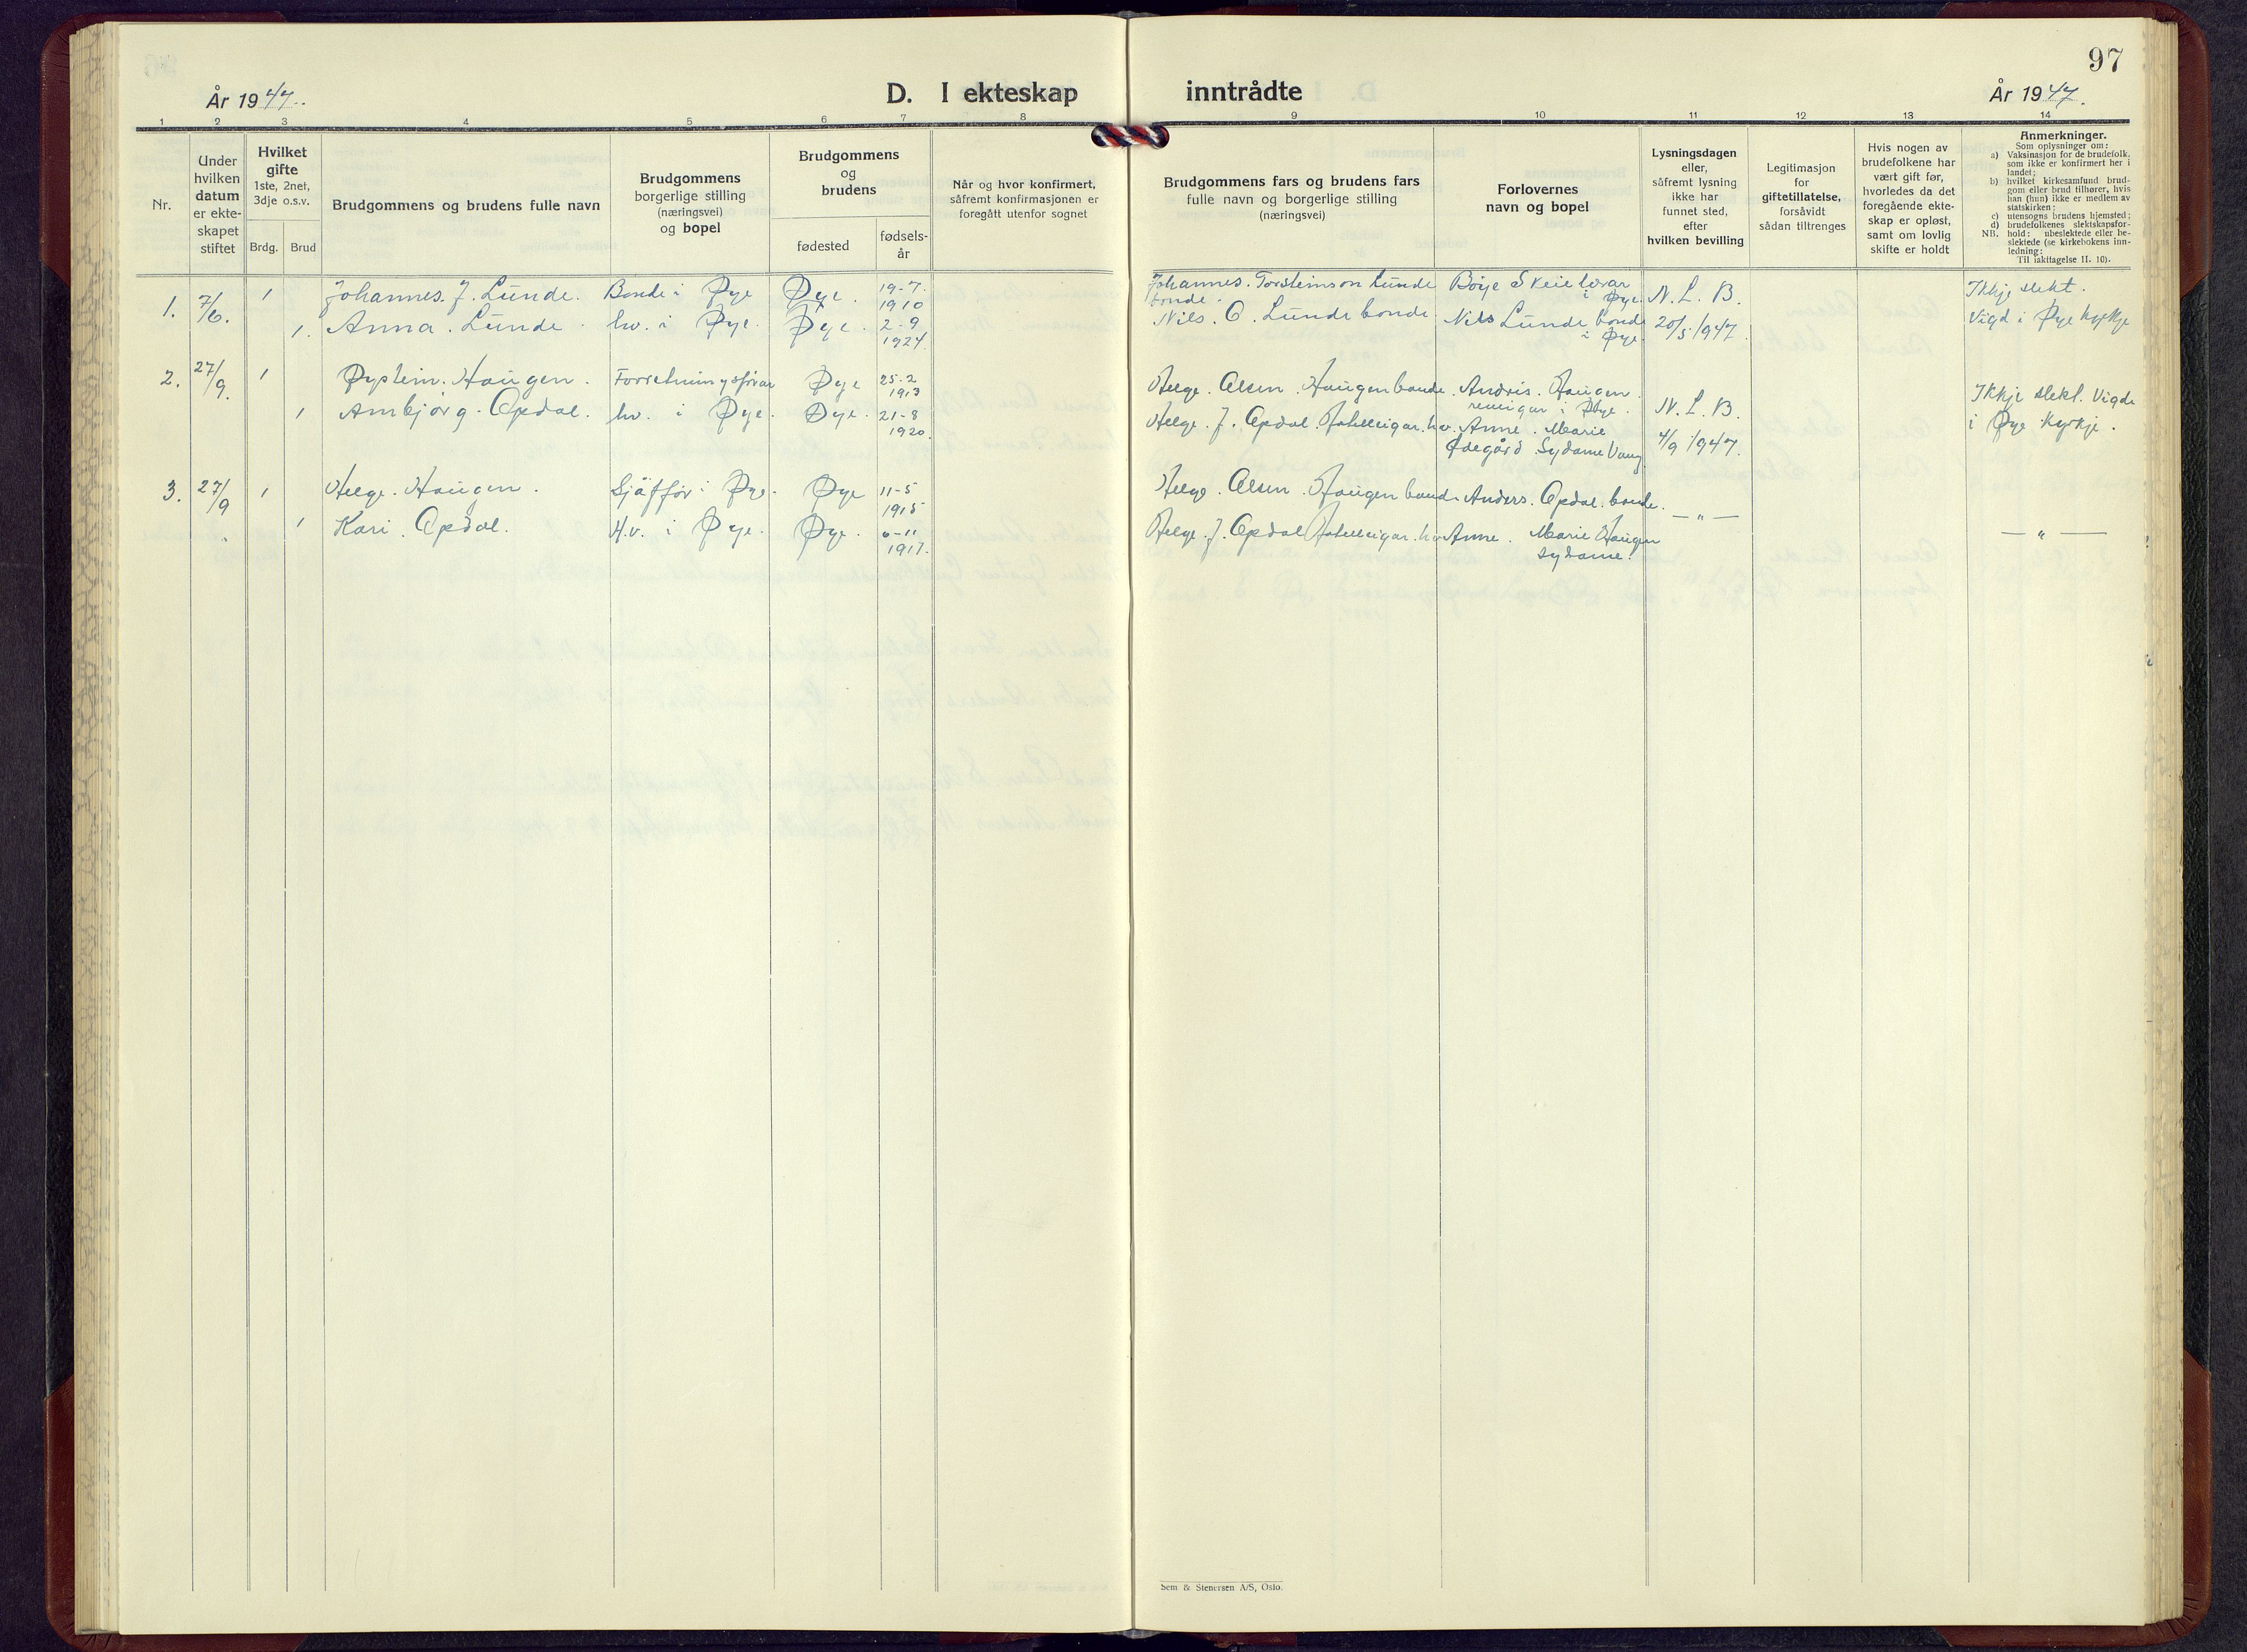 97
År 1947.
D. I ekteskap inntrådte
År 1947.
1 2 3 4 5 6 7 8 9 10 11 12 13 14
Nr.
Under
hvilken
datum
er ekte-
skapet
stiftet
Hvilket
gifte
1ste, 2net,
3dje o.s.v.
Brdg. Brud
Brudgommens og brudens fulle navn
Brudgommens
borgerlige stilling
(næringsvei)
og bopel
Brudgommens
og
brudens
fødested
fødsels-
år
Når og hvor konfirmert,
såfremt konfirmasjonen er
foregått utenfor sognet
Brudgommens fars og brudens fars
fulle navn og borgerlige stilling
(næringsvei)
Forlovernes
navn og bopel
Lysningsdagen
eller,
såfremt lysning
ikke har
funnet sted,
efter
hvilken bevilling
Legitimasjon
for
giftetillatelse,
forsåvidt
sådan tiltrenges
Hvis nogen av
brudefolkene har
vært gift før,
hvorledes da det
foregående ekte-
skap er opløst,
samt om lovlig
skifte er holdt
Anmerkninger.
Som oplysninger om:
a) Vaksinasjon for de brudefolk,
som ikke er konfirmert her i
landet;
b) hvilket kirkesamfund brud-
gom eller brud tilhører, hvis
han (hun) ikke er medlem av
statskirken;
c) utensogns brudens hjemsted;
d) brudefolkenes slektskapsfor-
hold: ubeslektede eller be-
NB. slektede (se kirkebokens inn-
ledning:
Til iakttagelse II. 10).
1. 7/6. 1 Johannes. J. Lunde. Bonde i Øye Øye. 19-7.
1910
1. Anna. Lunde. hv. i Øye. Øye. 2-9
1924.
Johannes. Torsteinson Lunde
bonde.
Nils. O. Lunde bonde
Börje Skeie lærar
i Øye.
Nils Lunde bonde
i Øye.
N. L. B.
20/5 1947.
Ikkje slekt.
Vigd i Øye kyrkje
2. 27/9. 1 Øystein. Haugen. Forretningsförar Øye 25-2
1913
1 Ambjörg. Opdal. hv. i Øye. Øye. 21-8
1920.
Helge. Olsen. Haugen bonde.
Helge. J. Opdal. Hotelleigar. hv.
Andris. Haugen.
i Øye.
Anne. Marie
Ødegård Sydame Vang
N. L. B.
4/9 1947.
Ikkje slekt. Vigde
i Øye kyrkje.
3. 27/9 1 Helge. Haugen. Sjåffør i Øye. Øye 11-5
1915
1 Kari. Opdal. H.v. i Øye. Øye. 6-11
1917.
Helge. Olsen. Haugen bonde
Helge. J. Opdal Hotelleigar. hv
Anders. Opdal. bonde.
Anne. Marie Haugen
sydame.
— „ —
— „ —
Sem & Stenersen A/S, Oslo.